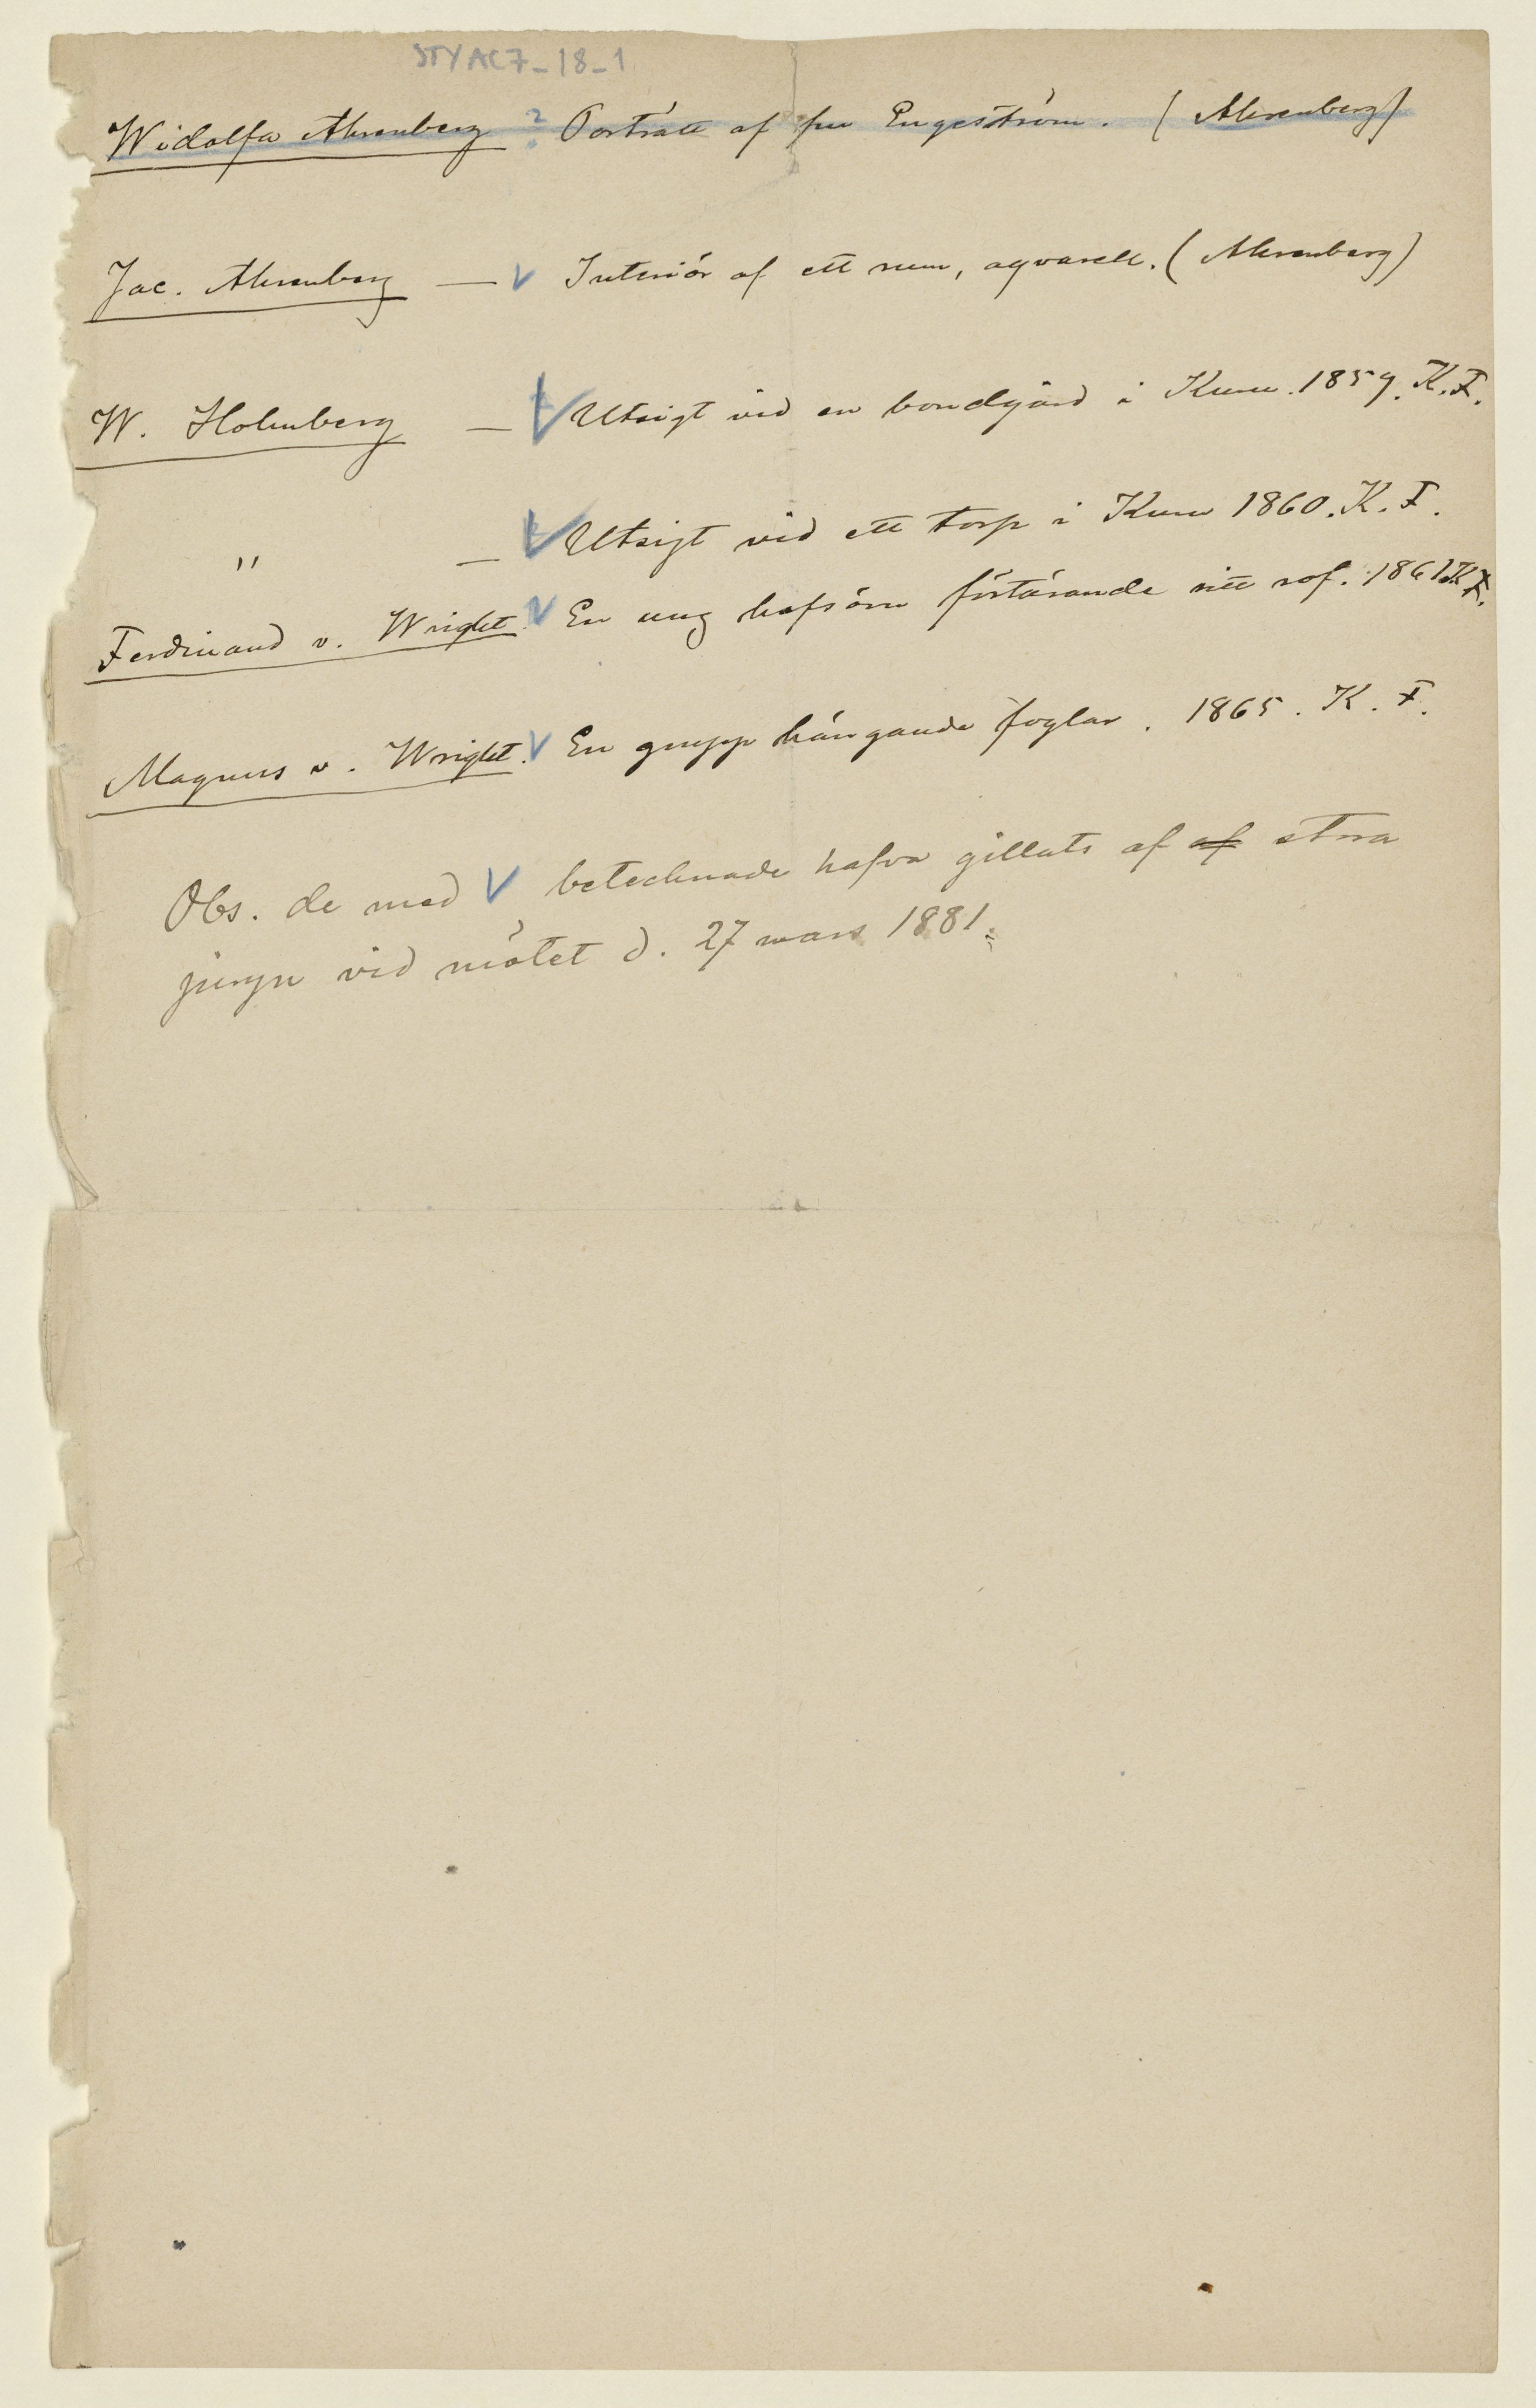 STYAC7_18_1
Widolfa Ahrenberg ? Porträtt af fru Engeström. (Ahrenberg)
Jac. Ahrenberg — V Interiör af ett rum, aqvarell. (Ahrenberg)
W. Holmberg — V Utsigt vid en bondgård i Kuru. 1859. K. F.
" — V Utsigt vid ett torp i Kuru 1860. K. F.
Ferdinand v. Wright. V En ung hafsörn förtärande sitt rof. 1861 K F.
Magnus v. Wright. V En grupp hängande foglar. 1865. K. F.
Obs. de med V betecknade hafva gillats af af stora
juryn vid mötet d. 27 mars 1881.